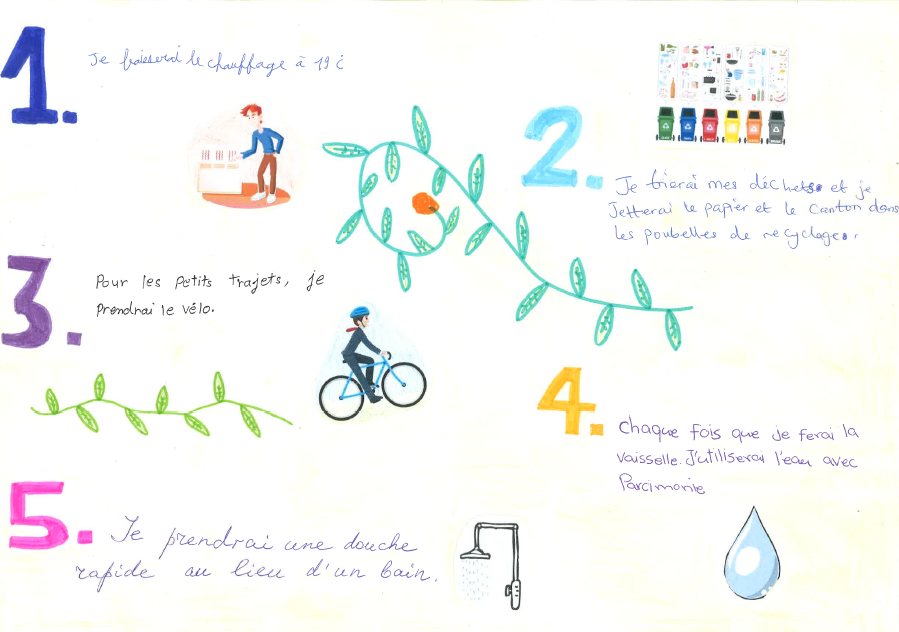 1.
Je baisserai le chauffage à 19 c
2.
Je trierai mes déchets et je
Jetterai le papier et le Canton dans
les poubelles de recyclage.
3.
Pour les petits trajets, je
Prendrai le vélo.
4.
chaque fois que je ferai la
vaisselle. J'utiliserai l'eau avec
Parcimonie
5.
Je prendrai une douche
rapide au lieu d'un bain.